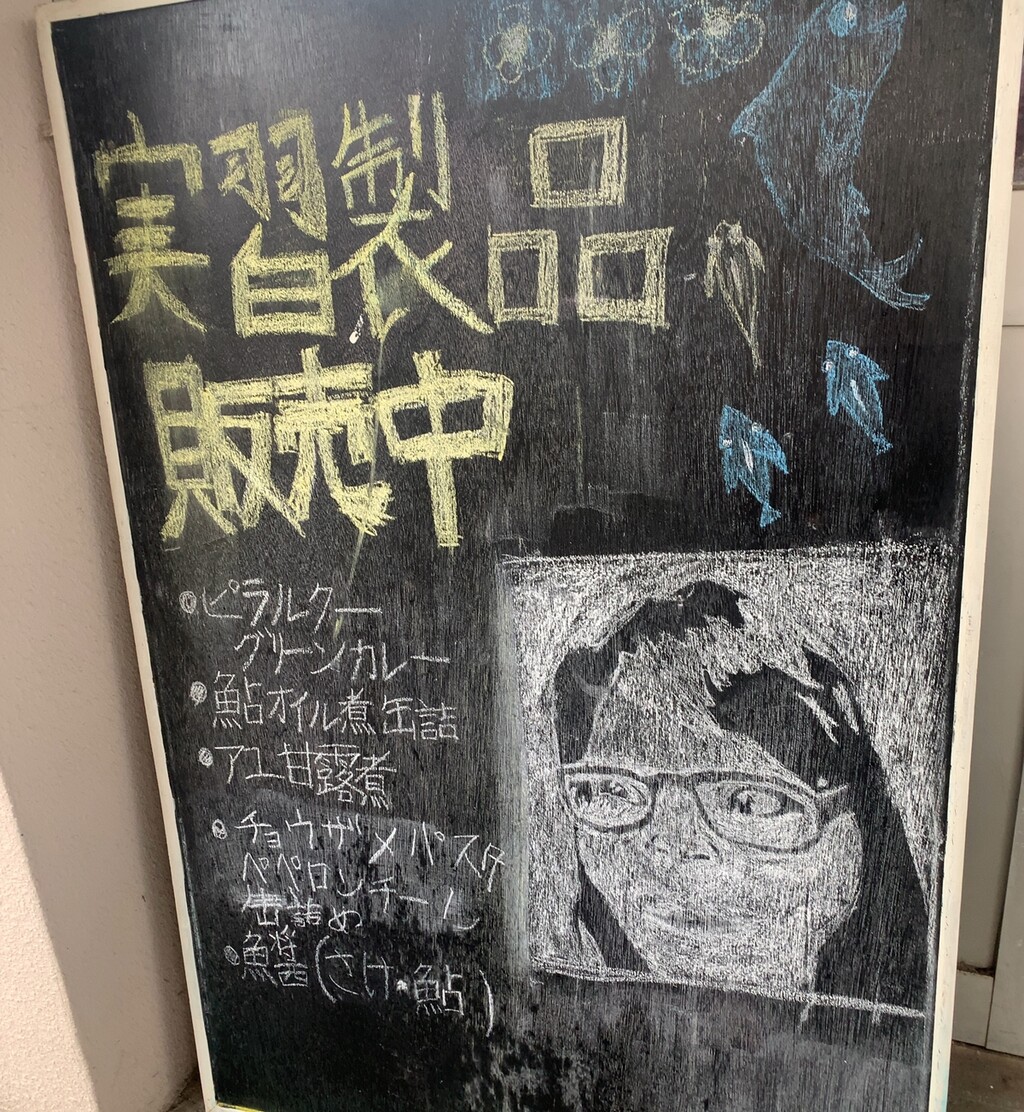 実習製品
販売中
・ピラルクー
グリーンカレー
・鮎オイル煮缶詰
・アユ甘露煮
・チョウザメパスタ
ペペロンチーノ
缶詰め
・魚醤(さけ・鮎)